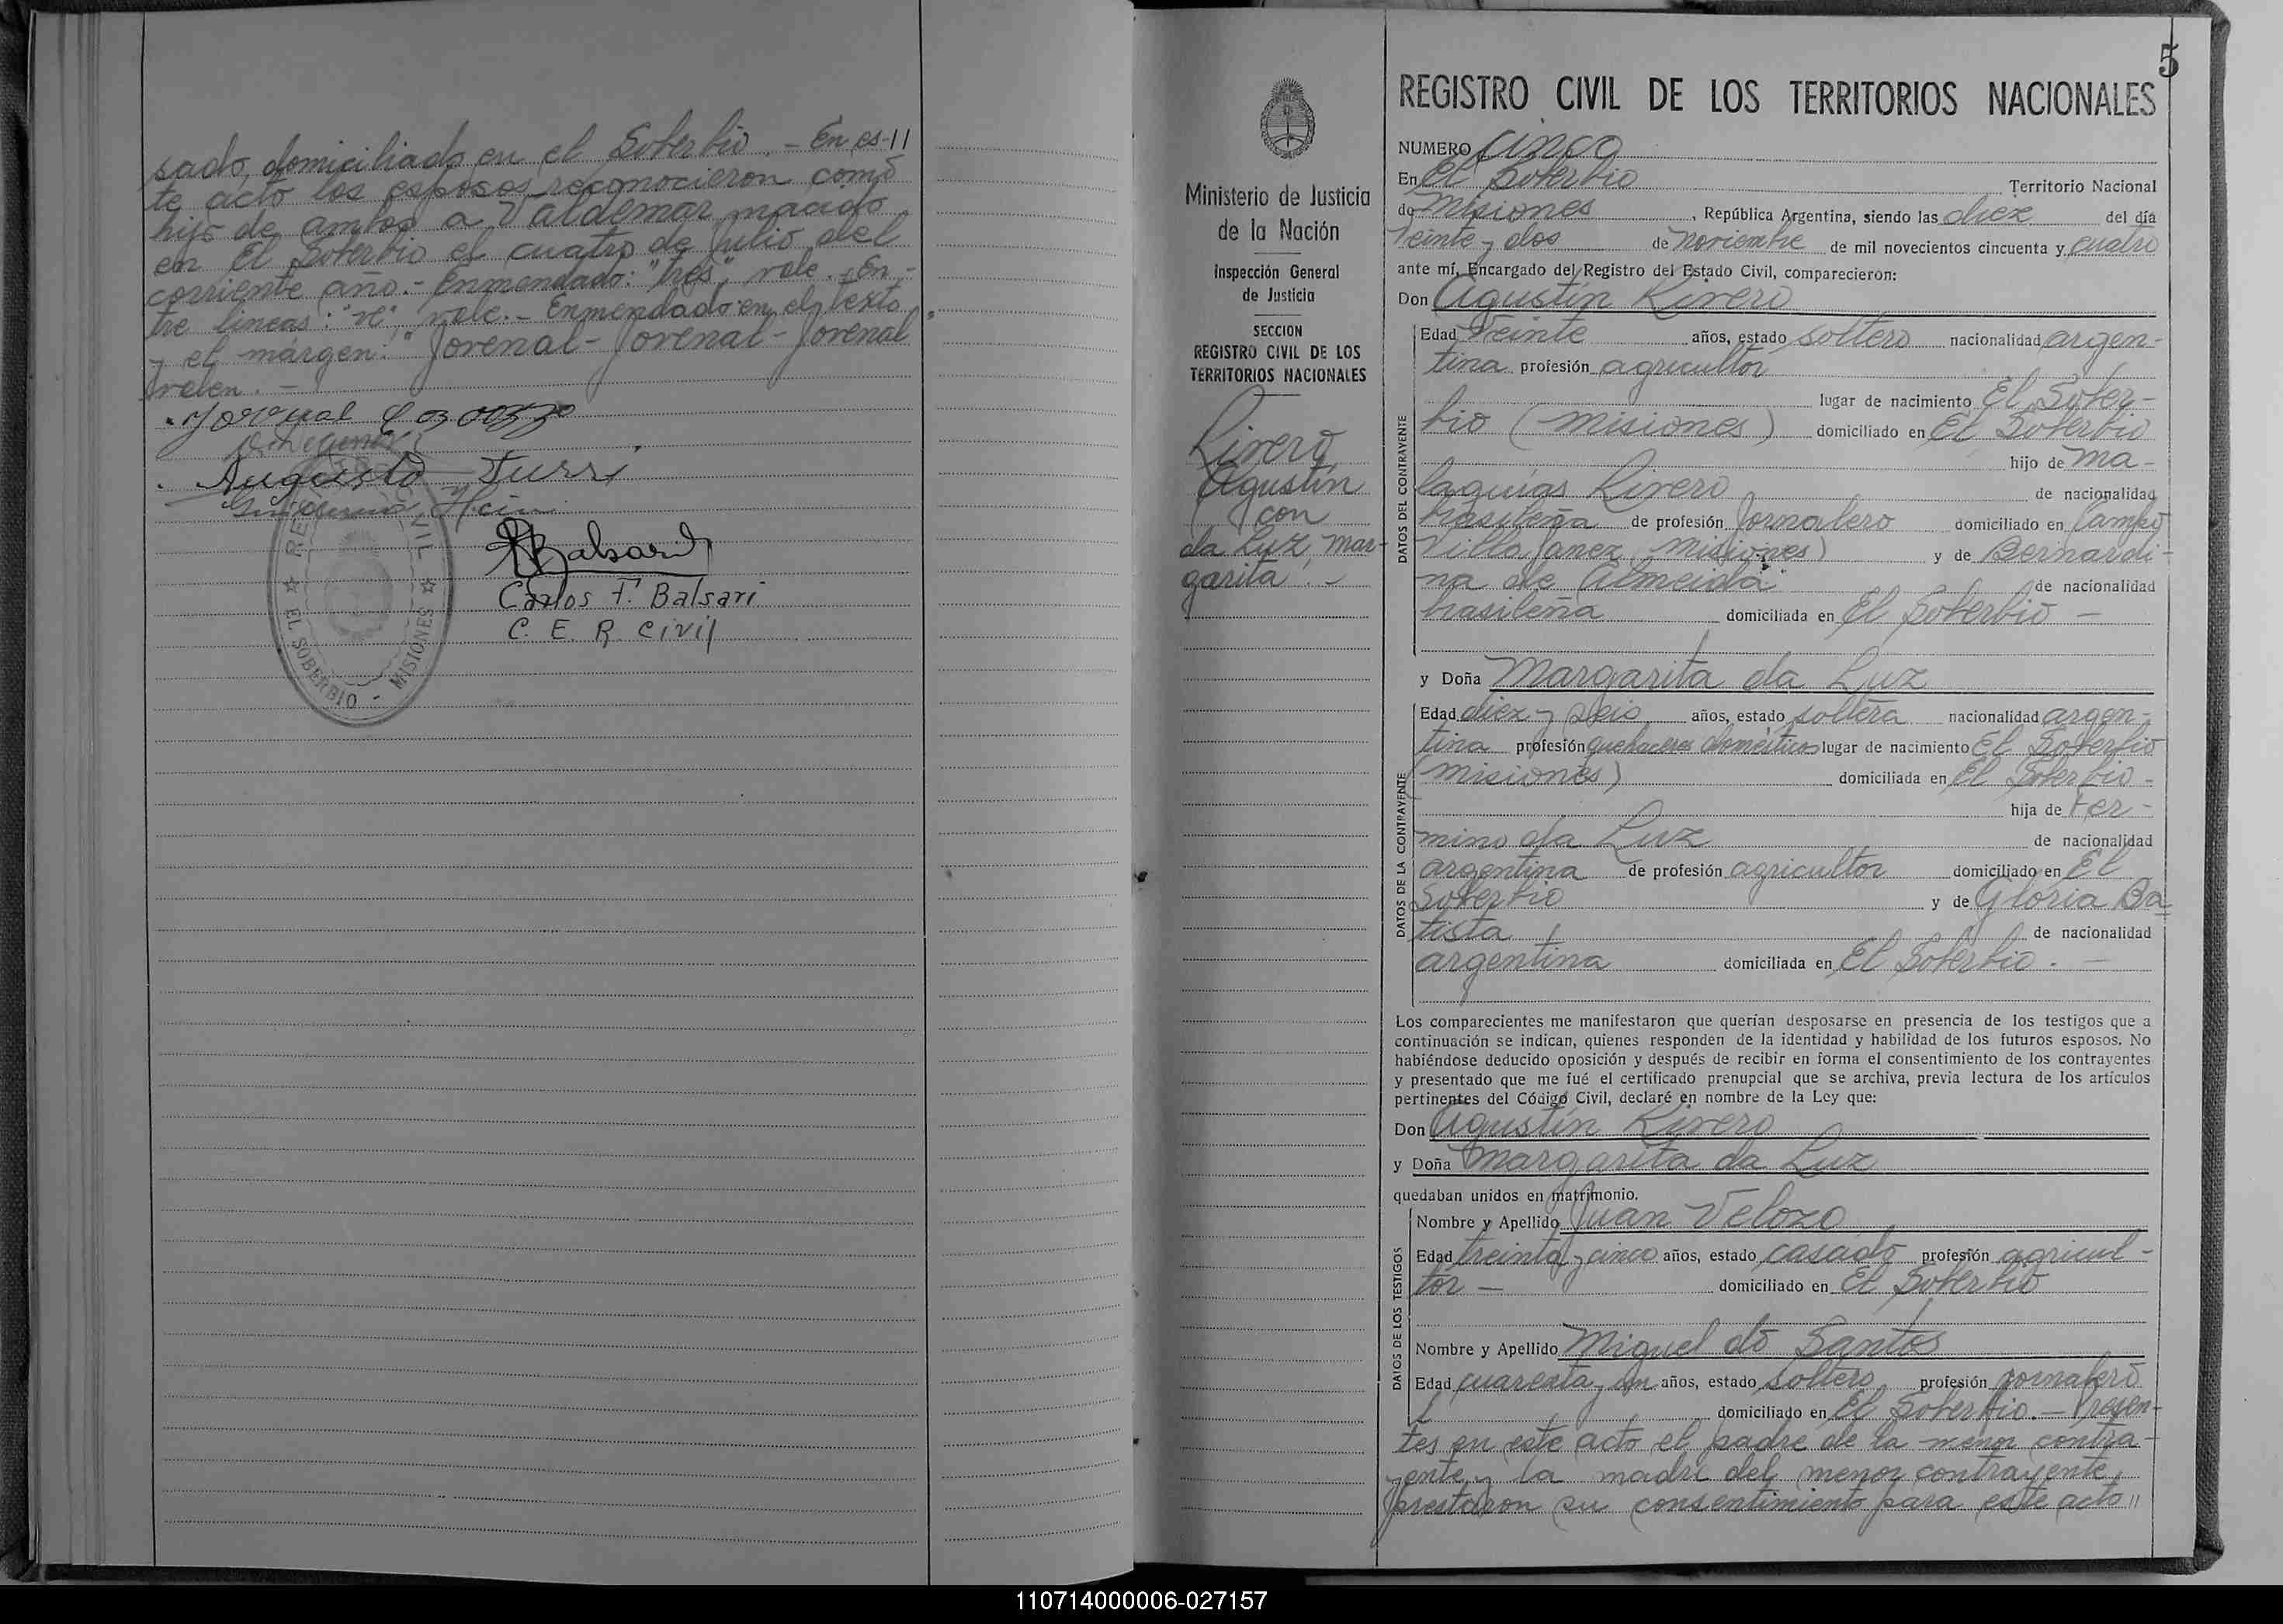 sado, domiciliado en el Soberbio. - En es-//
te acto los esposos reconocieron como
hijo de ambos a Valdemar, nacido
en El Soberbio el cuatro de julio del
corriente año.- Enmendado: "tres", vale.- En-
tre lineas: "re", vale.- Enmendado en el texto
y el márgen: "Jovenal- Jovenal- Jovenal"
valen. -
Augusto Turri
Balsari
Carlos F. Balsari
C. E. R. Civil
REG CIVIL
EL SOBERBIO - MISIONES
Ministerio de Justicia
de la Nación
Inspección General
de Justicia
SECCION
REGISTRO CIVIL DE LOS
TERRITORIOS NACIONALES
Rivero
Agustín
con
da Luz Mar-
garita. -
5
REGISTRO CIVIL DE LOS TERRITORIOS NACIONALES
NUMERO Cinco
En El Soberbio Territorio Nacional
de Misiones, República Argentina, siendo las diez del día
veinte y dos de noviembre de mil novecientos cincuenta y cuatro
ante mí, Encargado del Registro del Estado Civil, comparecieron:
Don Agustín Rivero
DATOS DEL CONTRAYENTE
Edad veinte años, estado soltero nacionalidad argen-
tina profesión agricultor
lugar de nacimiento El Sober-
bio (Misiones) domiciliado en El Soberbio
hijo de Ma-
laquías Rivero de nacionalidad
brasileña de profesión jornalero domiciliado en Campo
Villa (Misiones) y de Bernardi-
na de Almeida de nacionalidad
brasileña domiciliada en El Soberbio -
y Doña Margarita da Luz
DATOS DE LA CONTRAYENTE
Edad diez y seis años, estado soltera nacionalidad argen-
tina profesión quehaceres domésticos lugar de nacimiento El Soberbio
(Misiones) domiciliada en El Soberbio -
hija de Fer-
mino da Luz de nacionalidad
argentina de profesión agricultor domiciliado en El
Soberbio y de Gloria Ba-
tista de nacionalidad
argentina domiciliada en El Soberbio. -
Los comparecientes me manifestaron que querían desposarse en presencia de los testigos que a
continuación se indican, quienes responden de la identidad y habilidad de los futuros esposos. No
habiéndose deducido oposición y después de recibir en forma el consentimiento de los contrayentes
y presentado que me fué el certificado prenupcial que se archiva, previa lectura de los artículos
pertinentes del Código Civil, declaré en nombre de la Ley que:
Don Agustín Rivero
y Doña Margarita da Luz
quedaban unidos en matrimonio.
DATOS DE LOS TESTIGOS
Nombre y Apellido Juan Velozo
Edad treinta y cinco años, estado casado profesión agricul-
tor - domiciliado en El Soberbio
Nombre y Apellido Miguel do Santos
Edad cuarenta y un años, estado soltero profesión jornalero
domiciliado en El Soberbio. - Presen-
tes en este acto el padre de la menor contra-
yente y la madre del menor contrayente,
prestaron su consentimiento para este acto //
110714000006-027157